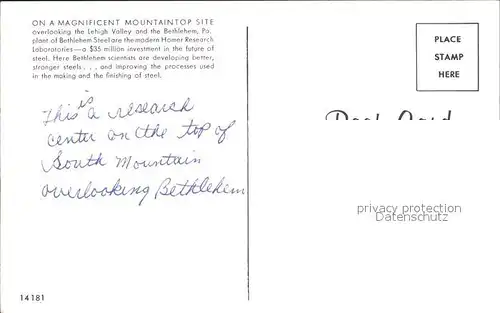 ON A MAGNIFICENT MOUNTAINTOP SITE
overlooking the Lehigh Valley and the Bethlehem, Pa.
plant of Bethlehem Steel are the modern Homer Research
Laboratories—a $35 million investment in the future of
steel. Here Bethlehem scientists are developing better,
stronger steels . . . and improving the processes used
in the making and the finishing of steel.
This is a research
center on the top of
South Mountain
overlooking Bethlehem
14181
PLACE
STAMP
HERE
Post Card
privacy protection
Datenschutz